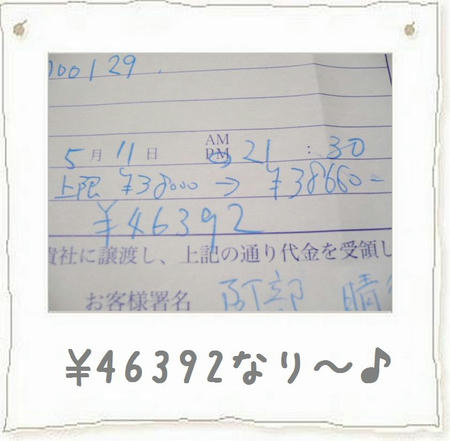 100129
5月11日 AM PM 21:30
上限 ¥38000 → ¥38660-
¥46392
貴社に譲渡し、上記の通り代金を受領し
お客様署名 阿部 晴
¥46392なり〜♪